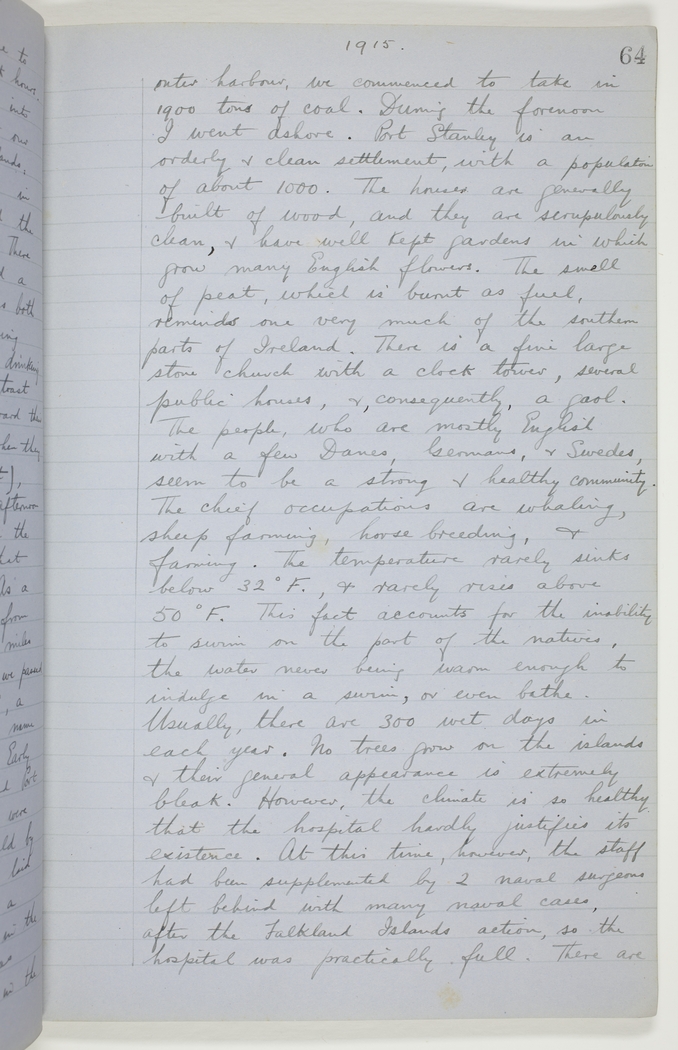 1915.
64
outer harbour, we commenced to take in
1900 tons of coal. During the forenoon
I went ashore. Port Stanley is an
orderly & clean settlement, with a population
of about 1000. The houses are generally
built of wood, and they are scrupulously
clean, & have well kept gardens in which
grow many English flowers. The smell
of peat, which is burnt as fuel,
reminds one very much of the southern
parts of Ireland. There is a fine large
stone church with a clock tower, several
public houses, &, consequently, a gaol.
The people, who are mostly English
with a few Danes, Germans, & Swedes,
seem to be a strong & healthy community.
The chief occupations are whaling,
sheep farming, horse breeding, &
farming. The temperature rarely sinks
below 32°F., & rarely rises above
50°F. This fact accounts for the inability
to swim on the part of the natives,
the water never being warm enough to
indulge in a swim, or even bathe.
Usually, there are 300 wet days in
each year. No trees grow on the islands
& their general appearance is extremely
bleak. However, the climate is so healthy
that the hospital hardly justifies its
existence. At this time, however, the staff
had been supplemented by 2 naval surgeons
left behind with many naval cases,
after the Falkland Islands action, so the
hospital was practically full. There are